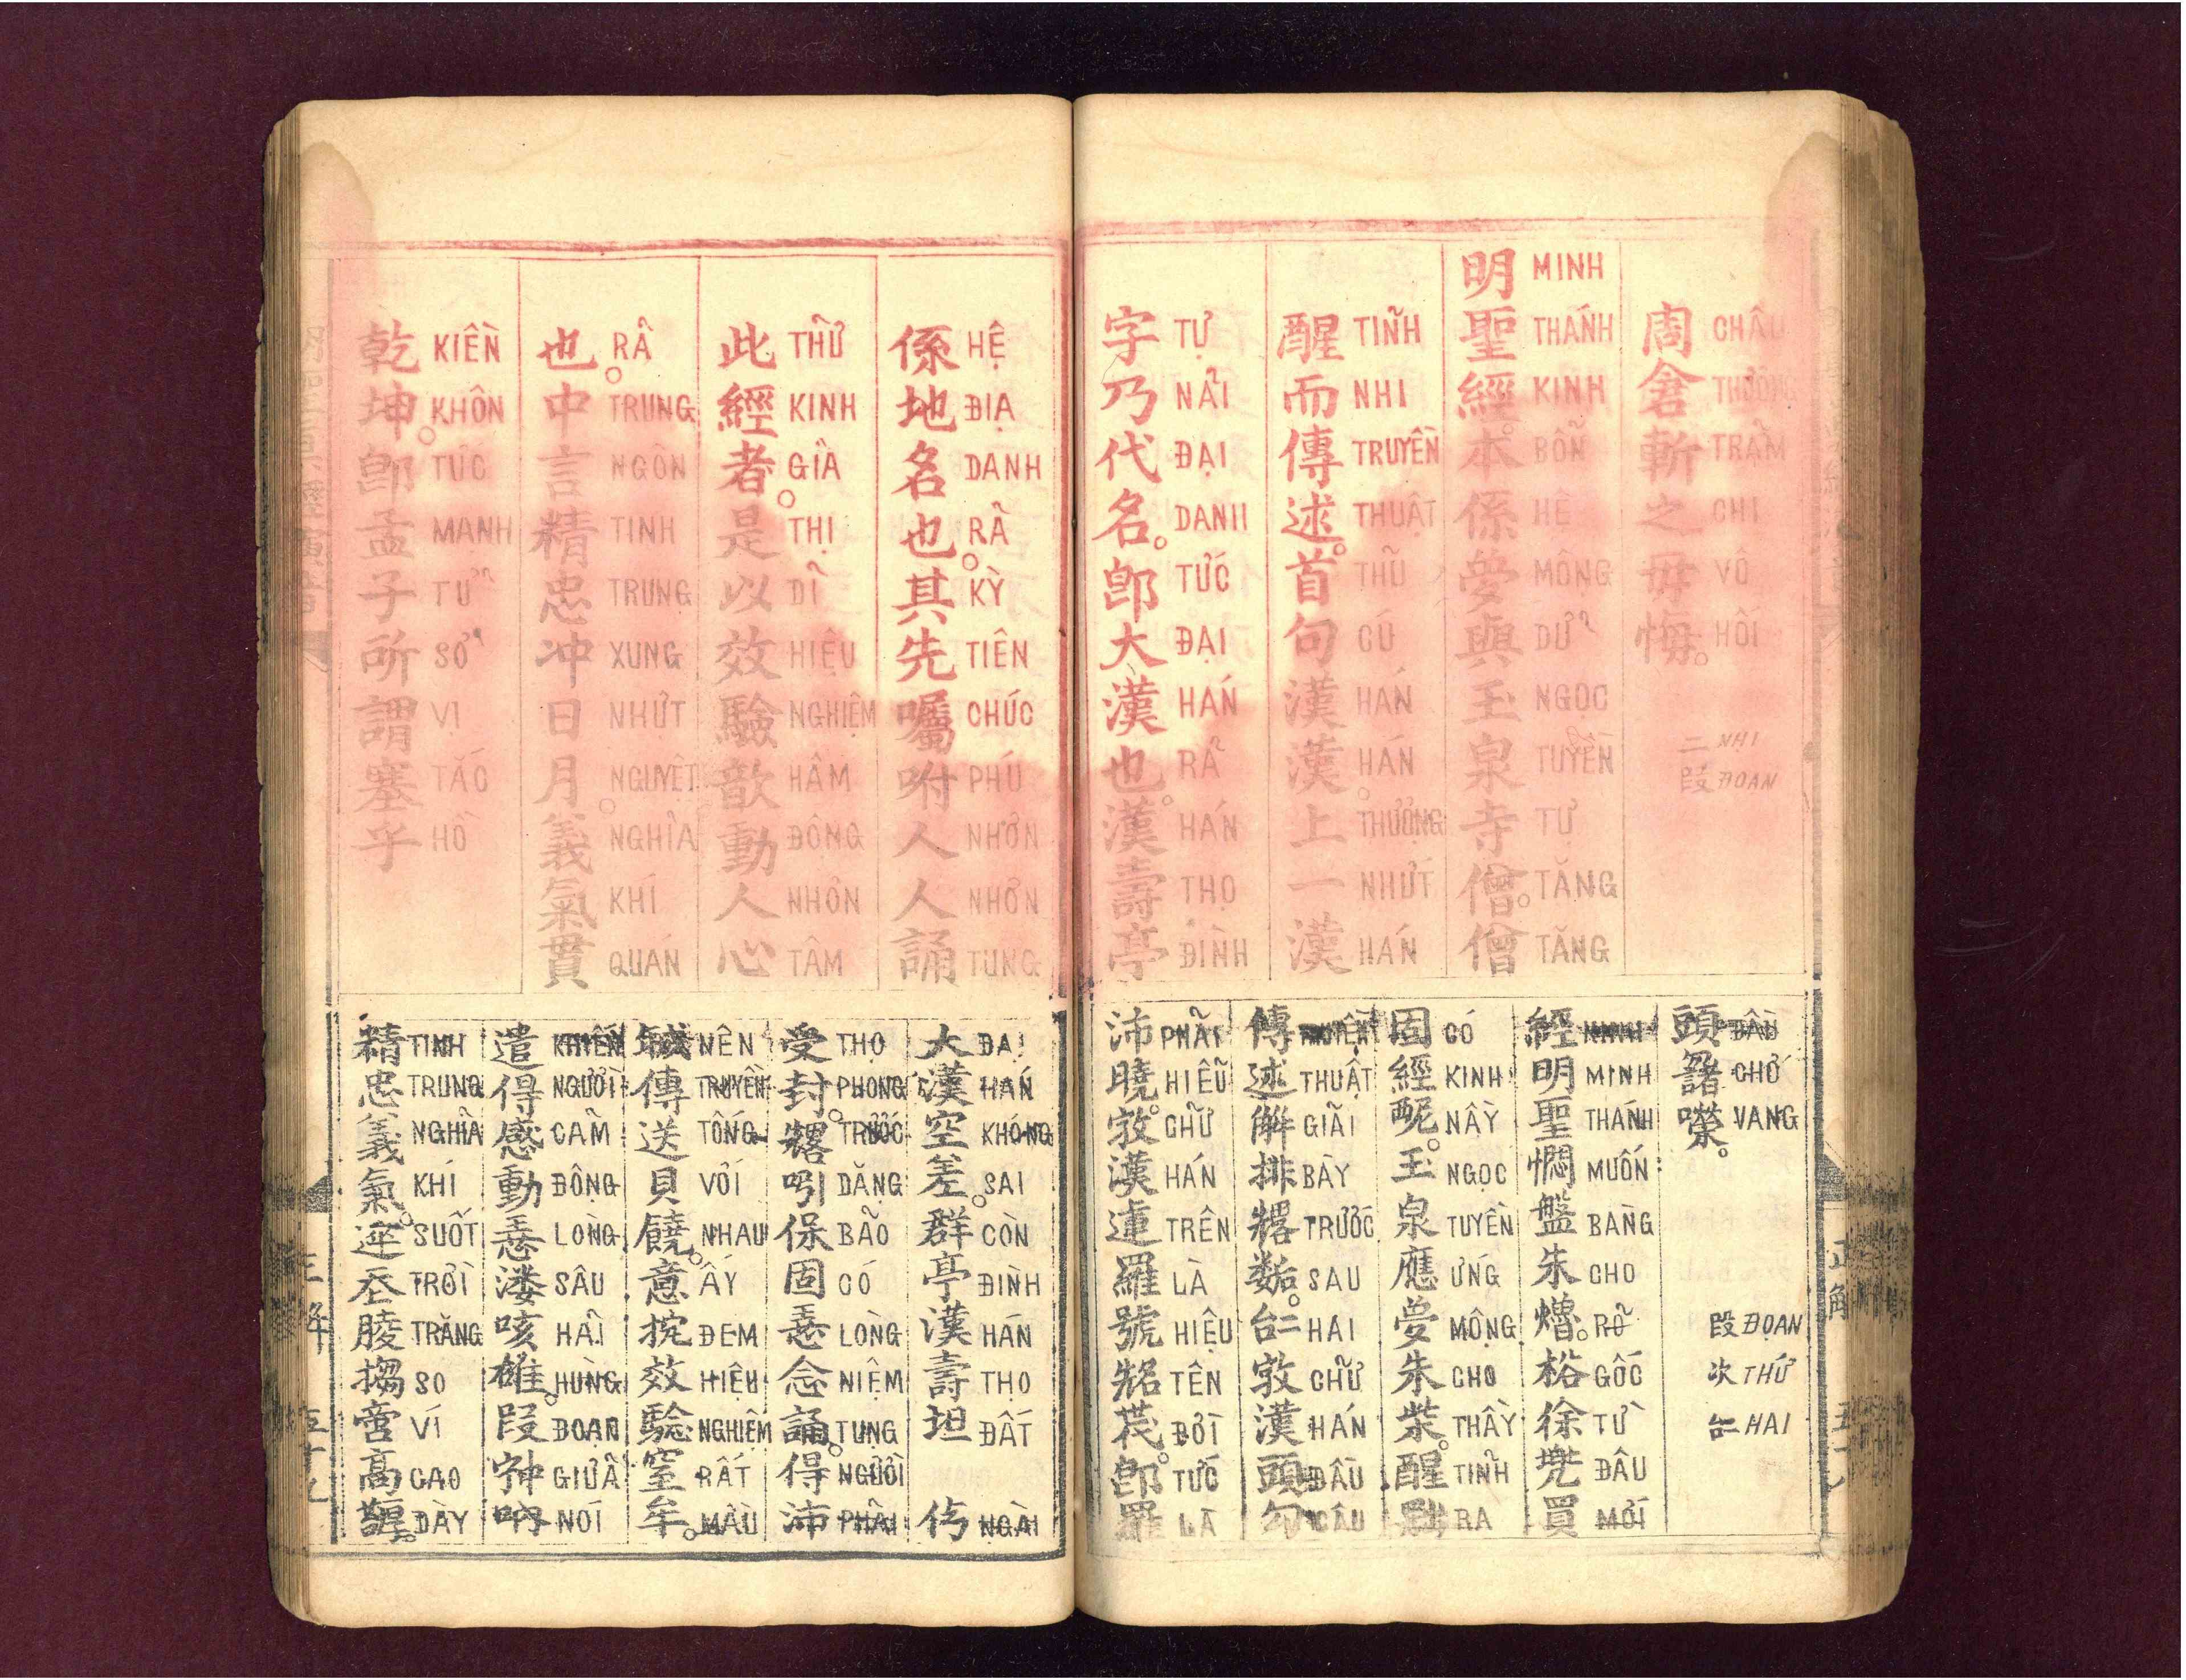 周倉斬之毋悔。
CHÂU THƯƠNG TRẢM CHI VÔ HỐI
二段
NHỊ ĐOẠN
明聖經。本係夢與玉泉寺僧。僧
MINH THÁNH KINH BỔN HỆ MỘNG DỮ NGỌC TUYỀN TỰ TĂNG TĂNG
醒而傳述。首句漢漢。上一漢
TỈNH NHI TRUYỀN THUẬT THỦ CÚ HÁN HÁN THƯỢNG NHỨT HÁN
字乃代名。卽大漢也。漢壽亭
TỰ NẢI ĐẠI DANH TỨC ĐẠI HÁN RẢ HÁN THỌ ĐÌNH
頭 嚛。
ĐẦU CHỚ VANG
段次𠄩
ĐOẠN THỨ HAI
經明聖憫盤朱燳。梞徐兠買
KINH MINH THÁNH MUỐN BÀNG CHO RÕ GỐC TỪ ĐÂU MỚI
固經呢。玉泉應夢朱柴。醒𦋦
CÓ KINH NẦY NGỌC TUYỀN ỨNG MỘNG CHO THẦY TỈNH RA
傳述解排𠓀𢖖。𠄩𡨸漢頭勾
TRUYỆN THUẬT GIÃI BÀY TRƯỚC SAU HAI CHỮ HÁN ĐẦU CÂU
沛曉。𡨸漢蓮羅號𠸛𠁀。卽羅
PHÃI HIỂU CHỮ HÁN TRÊN LÀ HIỆU TÊN ĐỜI TỨC LÀ
係地名也。其先囑咐人人誦
HỆ ĐỊA DANH RẢ KỲ TIÊN CHÚC PHÚ NHƠN NHƠN TỤNG
此經者。是以效驗歆動人心
THỬ KINH GIẢ THỊ DĨ HIỆU NGHIỆM HÂM ĐỘNG NHƠN TÂM
也。中言精忠冲日月。義氣貫
RẢ TRUNG NGÔN TINH TRUNG XUNG NHỰT NGUYỆT NGHĨA KHÍ QUÁN
乾坤。卽孟子所謂塞乎
KIỀN KHÔN TỨC MẠNH TỬ SỞ VỊ TẮC HỒ
大漢空差。群亭漢壽坦 𠊚
ĐẠI HÁN KHÔNG SAI CÒN ĐÌNH HÁN THỌ ĐẤT NGÀI
受封。𠓀 保固𢚸念誦。得沛
THỌ PHONG TRƯỚC DẶNG BÃO CÓ LÒNG NIỆM TỤNG NGƯỜI PHẢI
𢧚傳送貝饒。意挽效驗窒牟。
NÊN TRUYỀN TỐNG VỚI NHAU ẤY ĐEM HIỆU NGHIỆM RẤT MÀU
遣得感動𢚸溇咳雄。段𡨌吶
KHIẾN NGƯỜI CẢM ĐỘNG LÒNG SÂU HẢI HÙNG ĐOẠN GIỮA NÓI
精忠義氣。 𡗶𦝄搊 高𠫅。
TINH TRUNG NGHĨA KHÍ SUỐT TRỜI TRĂNG SO VÍ CAO DÀY